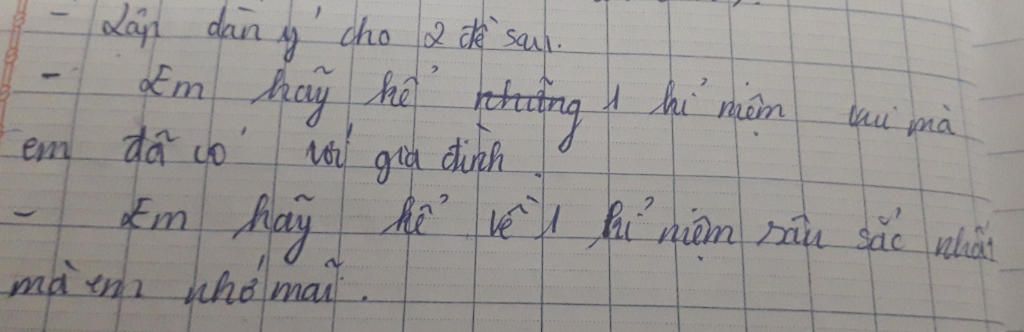 - Lập dàn ý cho 2 đề sau.
- Em hãy kể những 1 kỉ niệm vui mà
em đã có với gia đình.
- Em hãy kể về 1 kỉ niệm sâu sắc nhất
mà em nhớ mãi.